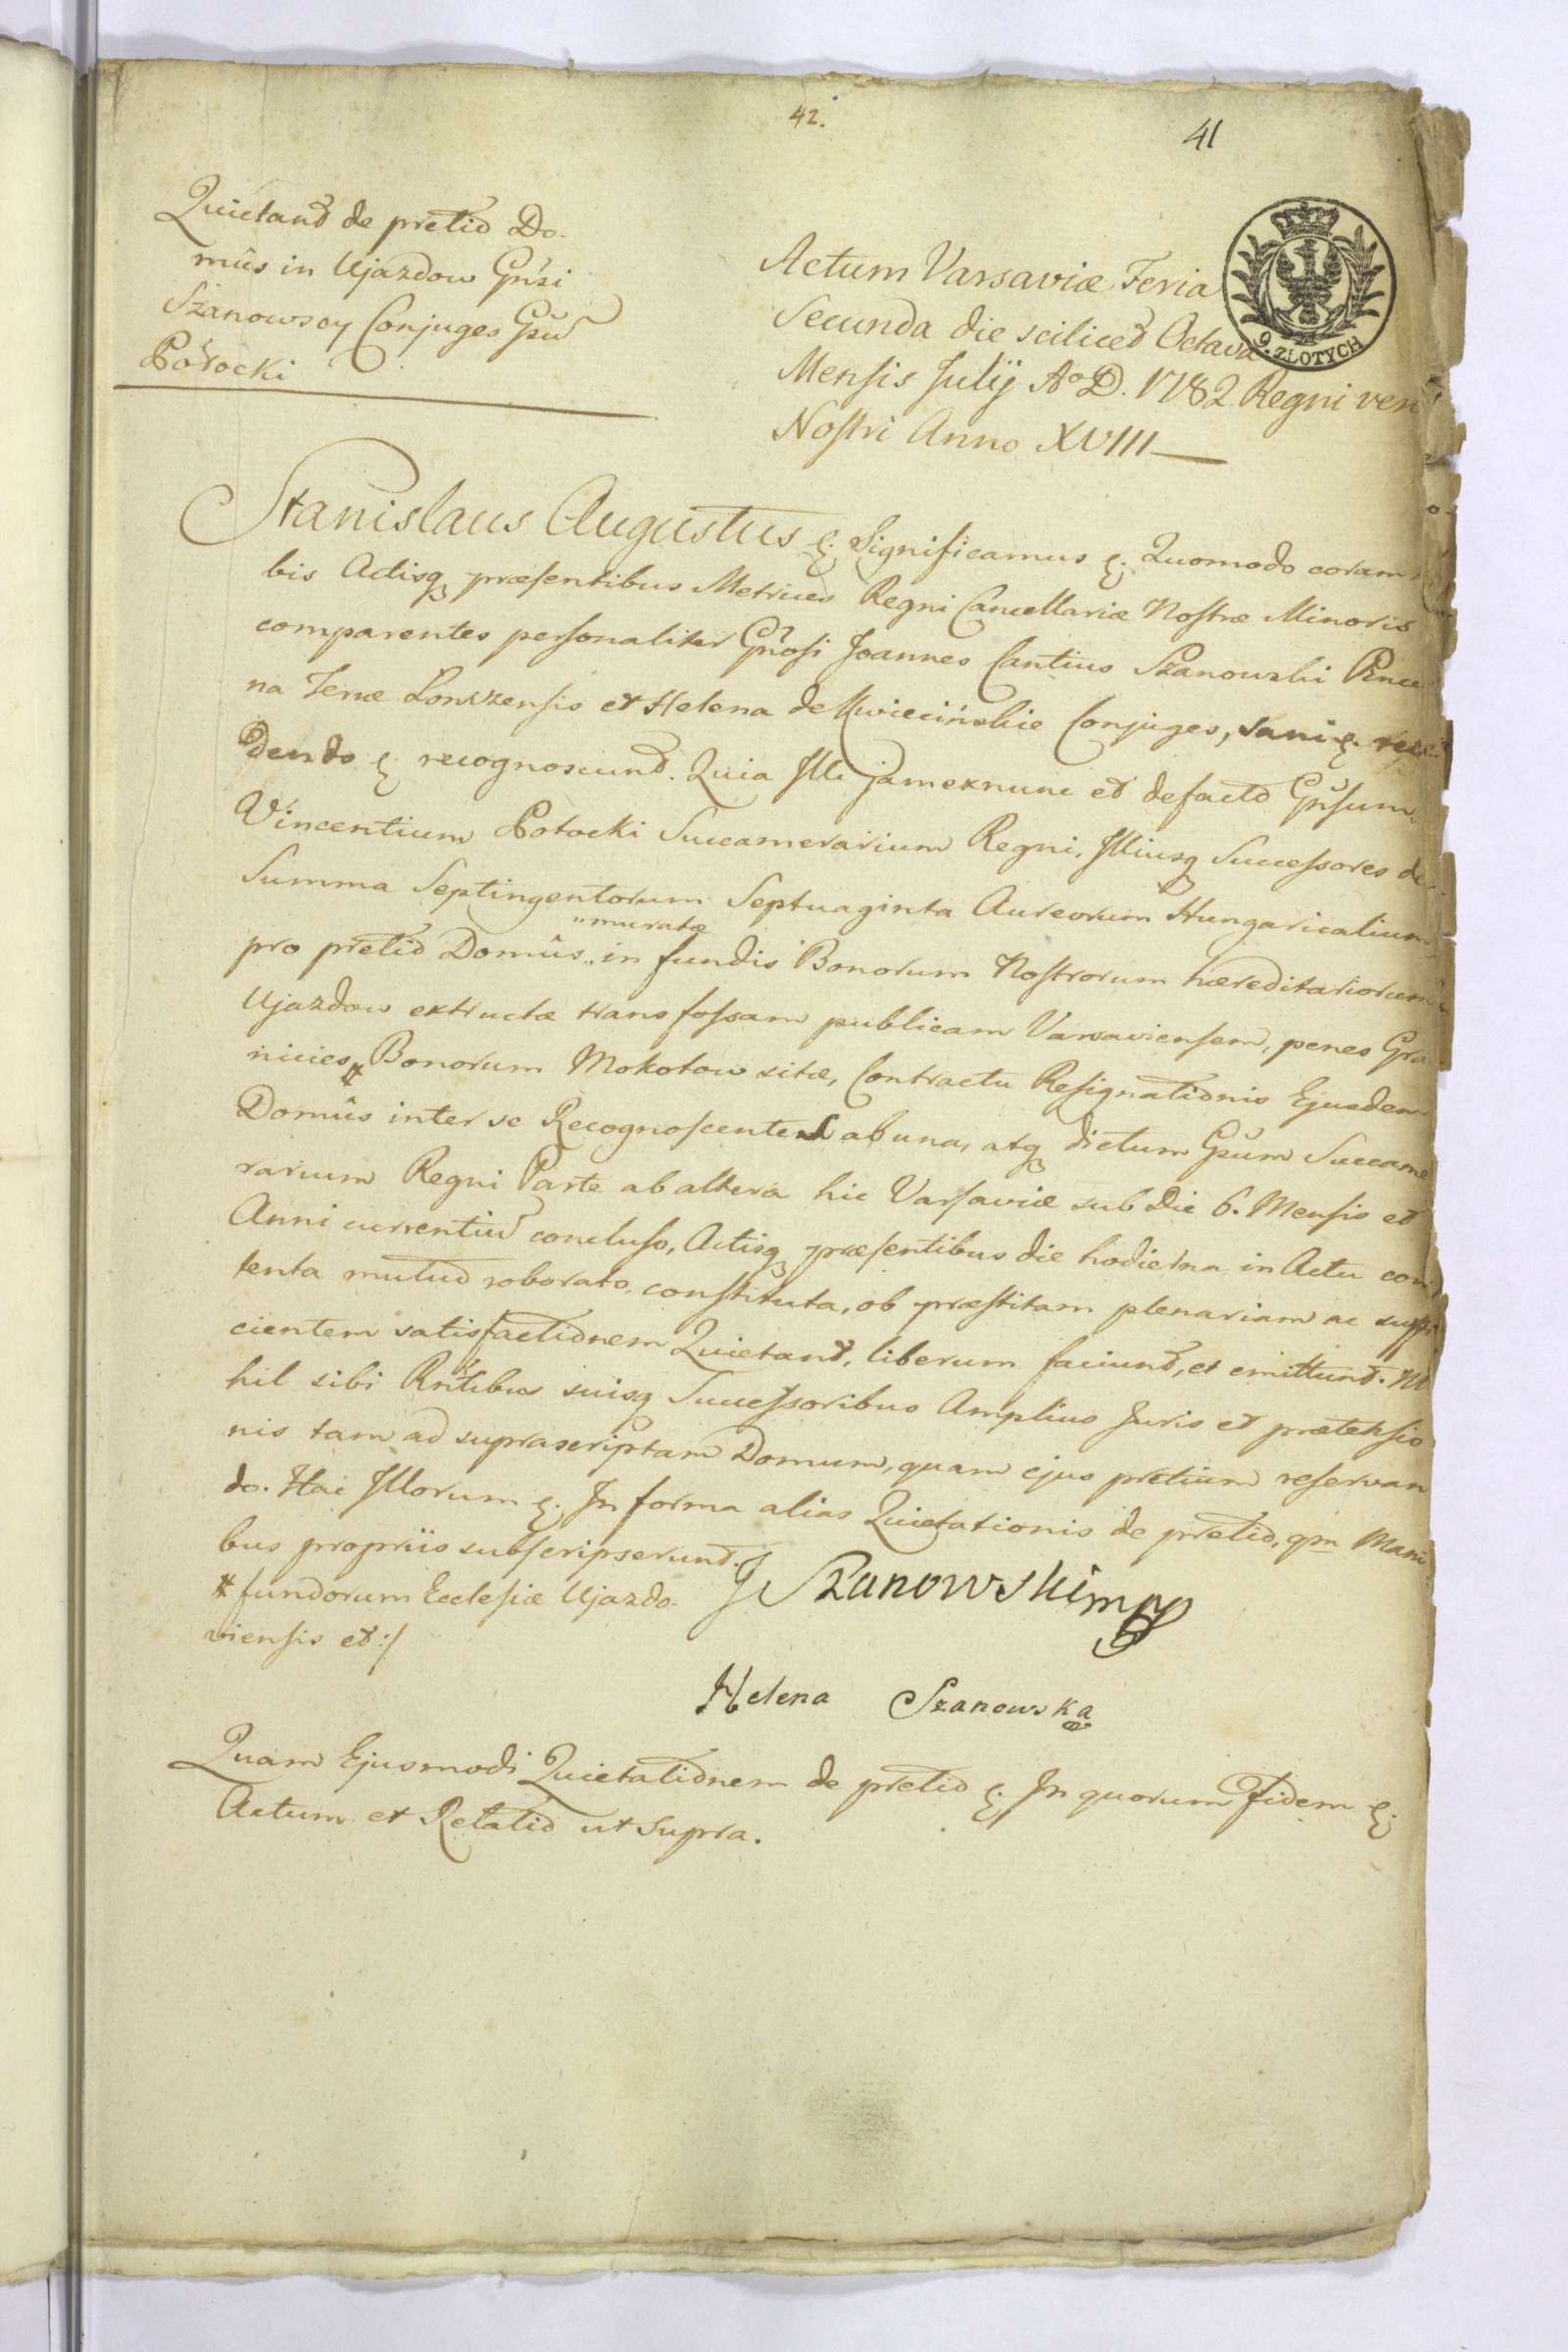 42.
41
Quietant de pretio Do-
mûs in Ujazdow Gnsi
Szanowscy Conjuges Gsu
Potocki
9. ZŁOTYCH
Actum Varsaviæ Feria
Secunda die scilicet Octava
Mensis Julij Ao D. 1782 Regni vero
Nostri Anno XVIII
Stanislaus Augustus &. Significamus &. Quomodo coram
bis Actisq præsentibus Metrices Regni Cancellariæ Nostræ Minoris
comparentes personaliter Gnosi Joannes Cantius Szanowski Pince
na Terræ Lomzensis et Helena de Kwiecińskie Conjuges, sani &.
dendo &. recognoscunt. Quia Illi jamexnunc et defacto Gnsum
Vincentium Potocki Succamerarium Regni, Illiusq Successores de
Summa Septingentorum Septuaginta Aureorum Hungaricalium
pro pretio Domûs "muratæ in fundis Bonorum Nostrorum hæreditariorum
Ujazdow extructæ trans fossam publicam Varsaviensem, penes Gra
nicies * Bonorum Mokotow sitæ, Contractu Resignationis Ejusdem
Domûs inter se Recognoscentes ab una, atq dictum Gsum Succame
rarium Regni Parte ab altera hic Varsaviæ sub die 6. Mensis et
Anni currentium concluso, Actisq præsentibus die hodierna in Actu con
tenta mutuo roborato, constituta, ob præstitam plenariam ac suffi
cientem satisfactionem Quietant, liberum faciunt, et emittunt. Ni
hil sibi Rntibus suisq Successoribus Amplius Juris et prætensio
nis tam ad suprascriptam Domum, quam ejus pretium reservan
do. Hac Illorum &. In forma alias Quietationis de pretio, qm Mani
bus propriis subscripserunt.
J Szanowski mp
* fundorum Ecclesiæ Ujazdo-
viensis et :/
Helena Szanowska
Quam Ejusmodi Quietationem de pretio &. In quorum Fidem &.
Actum et Relatio ut supra.